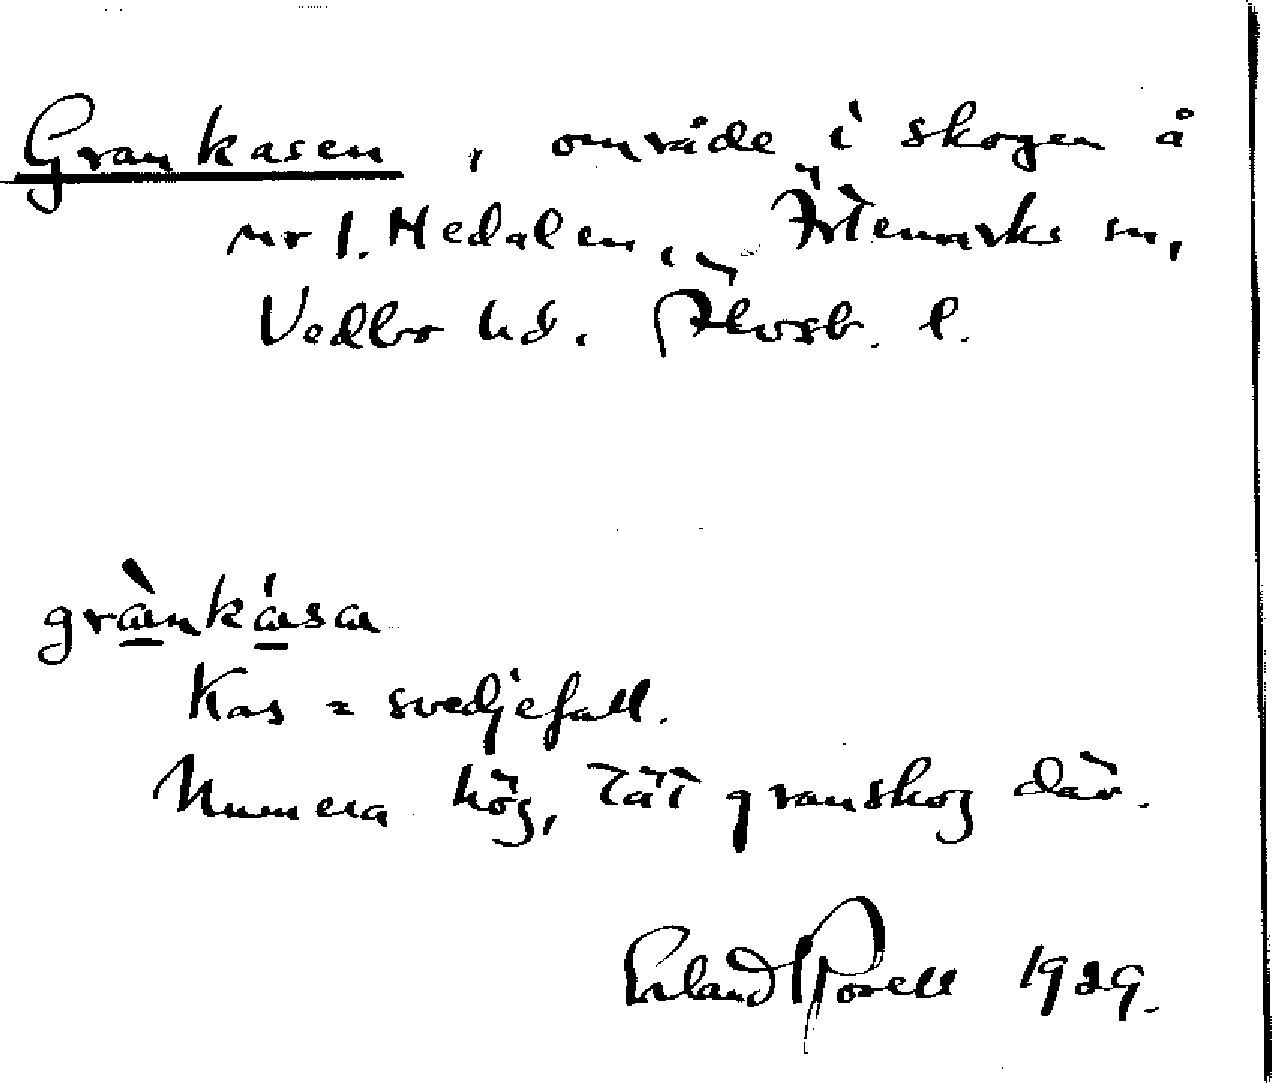 Grankasen, område i skogen å
nr 1. Hedalen, Ärtemarks sn,
Vedbo hd. Älvsb. l.
grànkása
Kas = svedjefall.
Numera hög, tät granskog där.
Erland Rosell 1929.